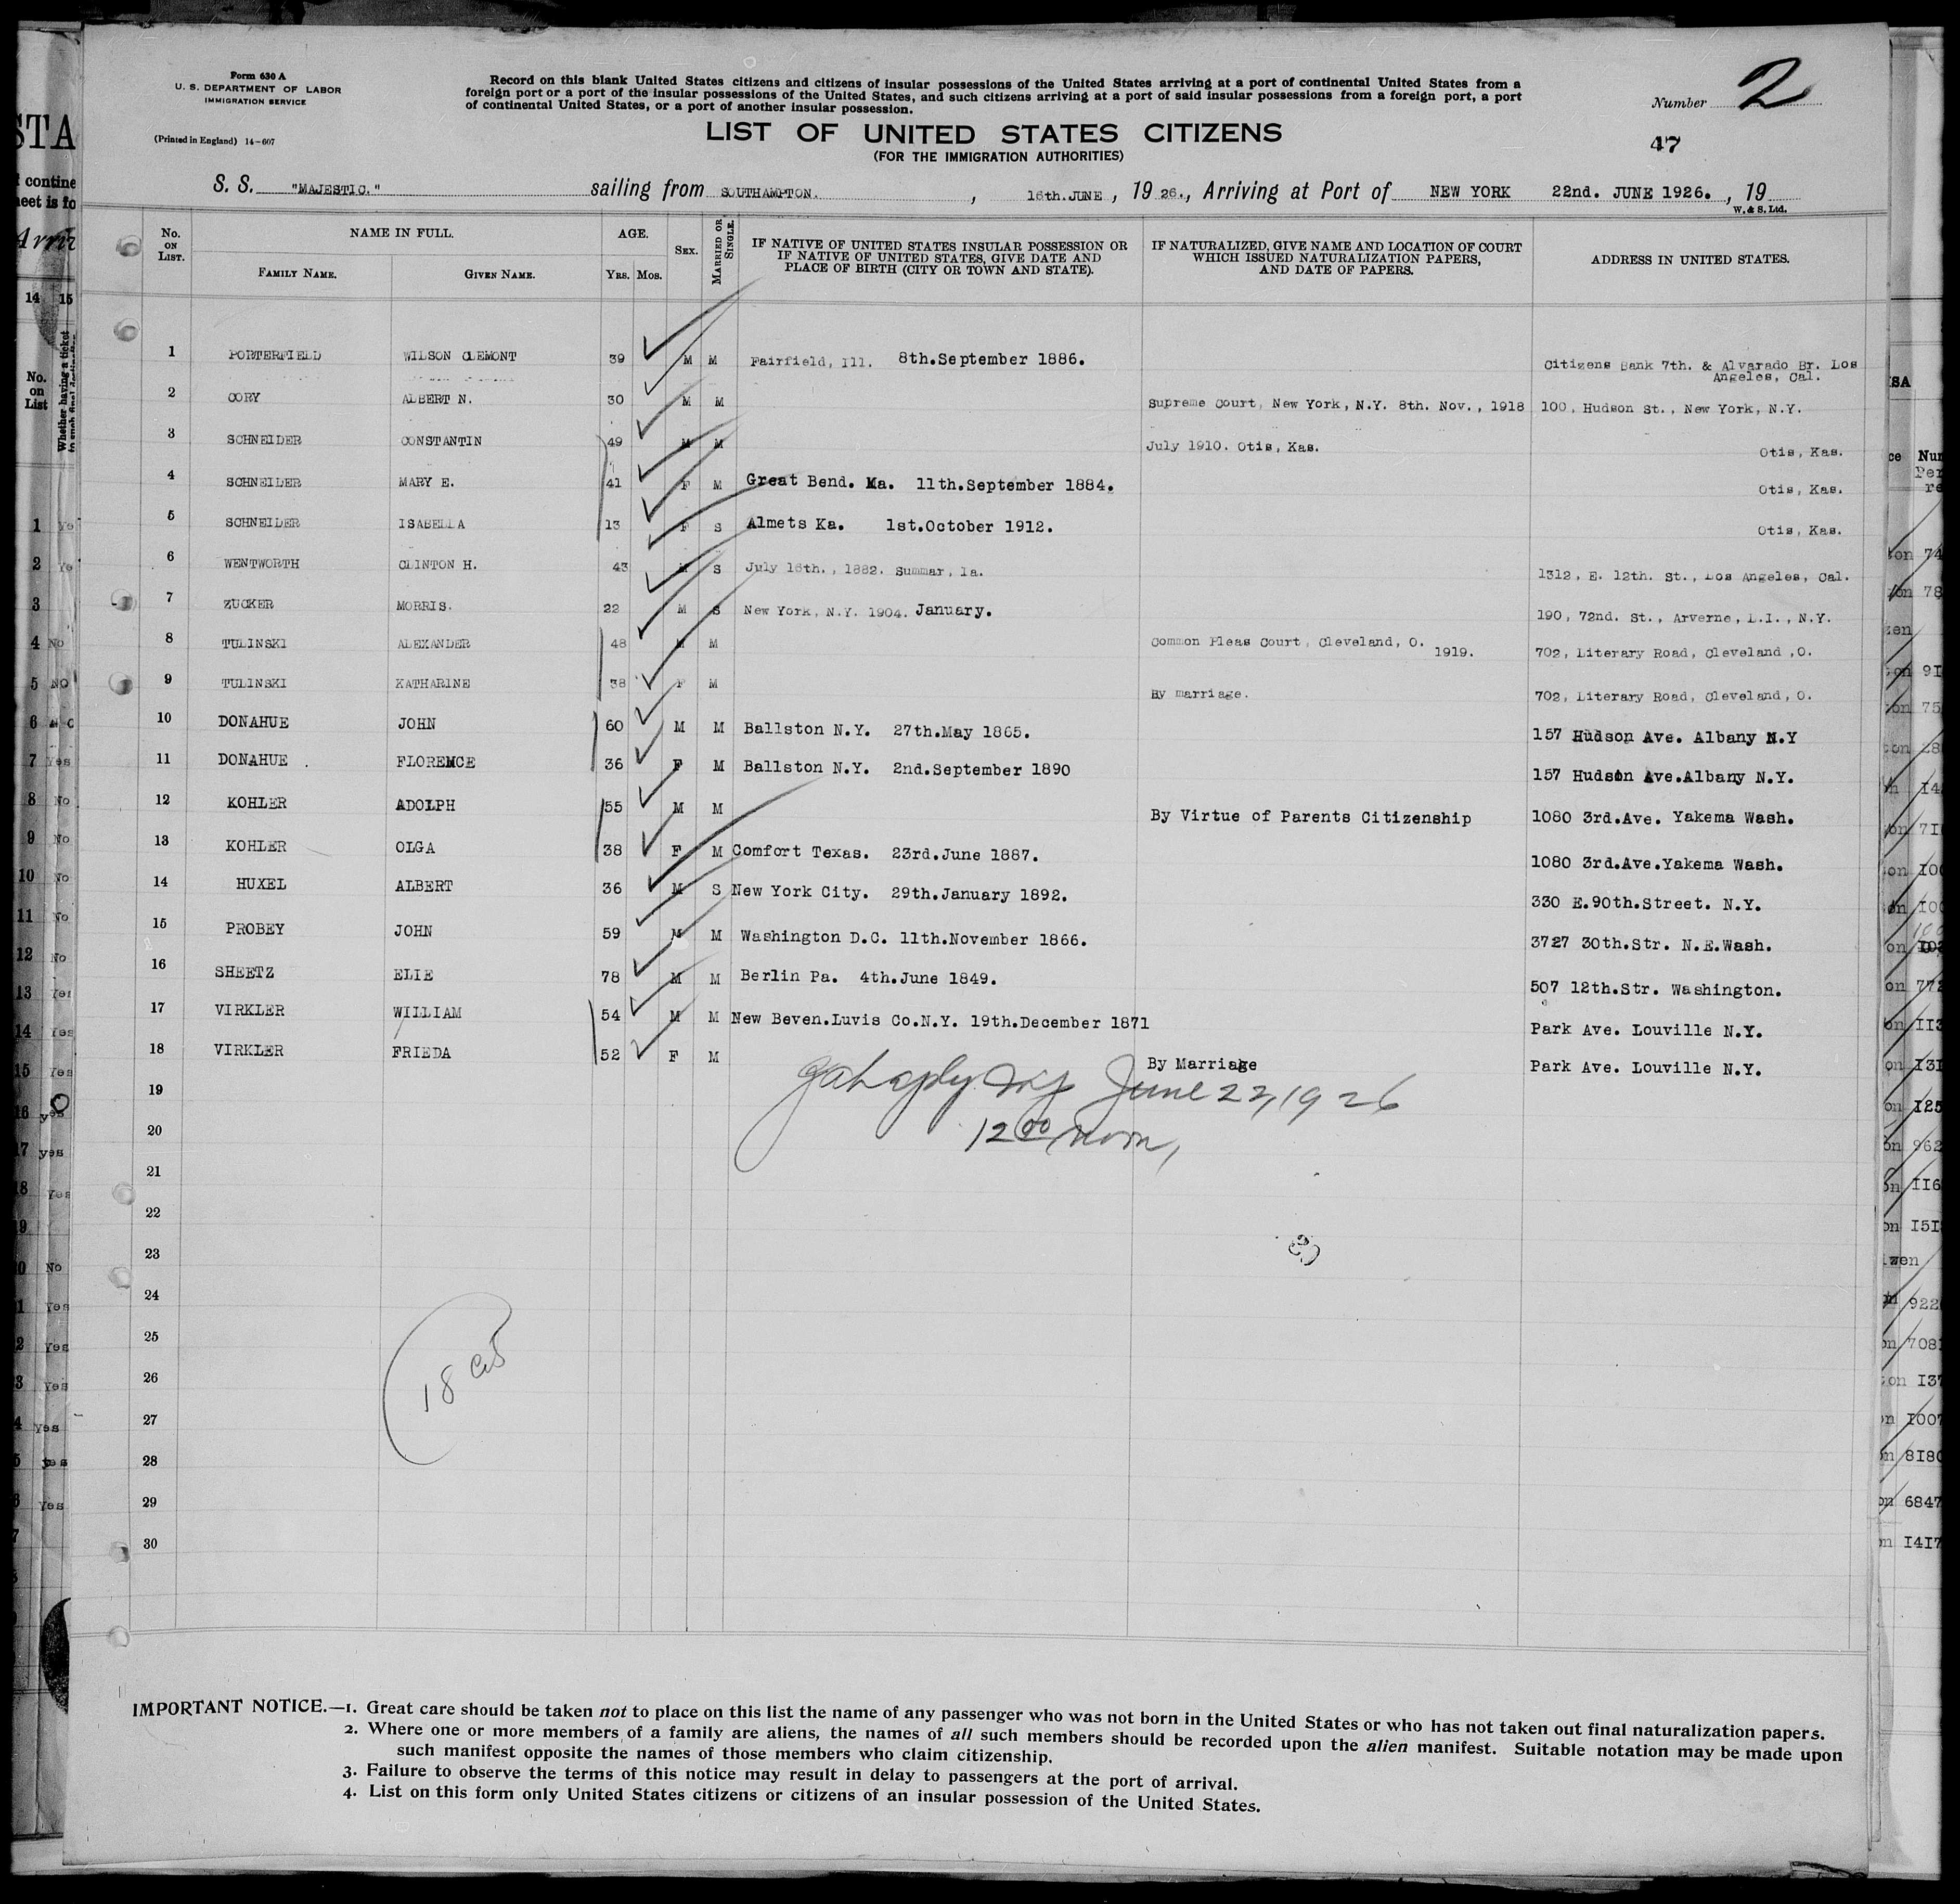 Form 630 A
U. S. DEPARTMENT OF LABOR
IMMIGRATION SERVICE
(Printed in England) 14-607
Record on this blank United States citizens and citizens of insular possessions of the United States arriving at a port of continental United States from a
foreign port or a port of the insular possessions of the United States, and such citizens arriving at a port of said insular possessions from a foreign port, a port
of continental United States, or a port of another insular possession.
Number 2
47
LIST OF UNITED STATES CITIZENS
(FOR THE IMMIGRATION AUTHORITIES)
S. S. "MAJESTIC." sailing from SOUTHAMPTON. , 16th.JUNE , 19 26., Arriving at Port of NEW YORK 22nd. JUNE 1926. , 19
W. & S. Ltd.
No. ON LIST. NAME IN FULL. FAMILY NAME. GIVEN NAME. AGE. YRS. MOS. SEX. MARRIED OR SINGLE. IF NATIVE OF UNITED STATES INSULAR POSSESSION OR IF NATIVE OF UNITED STATES, GIVE DATE AND PLACE OF BIRTH (CITY OR TOWN AND STATE). IF NATURALIZED, GIVE NAME AND LOCATION OF COURT WHICH ISSUED NATURALIZATION PAPERS, AND DATE OF PAPERS. ADDRESS IN UNITED STATES.
1 PORTERFIELD WILSON CLEMONT 39 M M Fairfield, Ill. 8th.September 1886. Citizens Bank 7th. & Alvarado Br. Los
Angeles, Cal.
2 CORY ALBERT N. 30 M M Supreme Court, New York, N.Y. 8th. Nov., 1918 100, Hudson St., New York, N.Y.
3 SCHNEIDER CONSTANTIN 49 M M July 1910. Otis, Kas. Otis, Kas.
4 SCHNEIDER MARY E. 41 F M Great Bend. Ka. 11th.September 1884. Otis, Kas.
5 SCHNEIDER ISABELLA 13 F S Almets Ka. 1st.October 1912. Otis, Kas.
6 WENTWORTH CLINTON H. 43 M S July 16th., 1882. Summar, Ia. 1312, E. 12th. St., Los Angeles, Cal.
7 ZUCKER MORRIS. 22 M S New York, N.Y. 1904. January. 190, 72nd. St., Arverne, L.I., N.Y.
8 TULINSKI ALEXANDER 48 M M Common Pleas Court, Cleveland, O. 1919. 702, Literary Road, Cleveland ,O.
9 TULINSKI KATHARINE 38 F M By marriage. 702, Literary Road, Cleveland, O.
10 DONAHUE JOHN 60 M M Ballston N.Y. 27th.May 1865. 157 Hudson Ave. Albany N.Y
11 DONAHUE . FLORENCE 36 F M Ballston N.Y. 2nd.September 1890 157 Hudson Ave.Albany N.Y.
12 KOHLER ADOLPH 55 M M By Virtue of Parents Citizenship 1080 3rd.Ave. Yakema Wash.
13 KOHLER OLGA 38 F M Comfort Texas. 23rd.June 1887. 1080 3rd.Ave.Yakema Wash.
14 HUXEL ALBERT 36 M S New York City. 29th.January 1892. 330 E.90th.Street. N.Y.
15 PROBEY JOHN 59 M M Washington D.C. 11th.November 1866. 3727 30th.Str. N.E.Wash.
16 SHEETZ ELIE 78 M M Berlin Pa. 4th.June 1849. 507 12th.Str. Washington.
17 VIRKLER WILLIAM 54 M M New Beven.Luvis Co.N.Y. 19th.December 1871 Park Ave. Louville N.Y.
18 VIRKLER FRIEDA 52 F M By Marriage Park Ave. Louville N.Y.
19
June 22, 1926
20
12 00 noon,
21
22
23
24
25
26
18
27
28
29
30
IMPORTANT NOTICE.—1. Great care should be taken not to place on this list the name of any passenger who was not born in the United States or who has not taken out final naturalization papers.
2. Where one or more members of a family are aliens, the names of all such members should be recorded upon the alien manifest. Suitable notation may be made upon
such manifest opposite the names of those members who claim citizenship.
3. Failure to observe the terms of this notice may result in delay to passengers at the port of arrival.
4. List on this form only United States citizens or citizens of an insular possession of the United States.